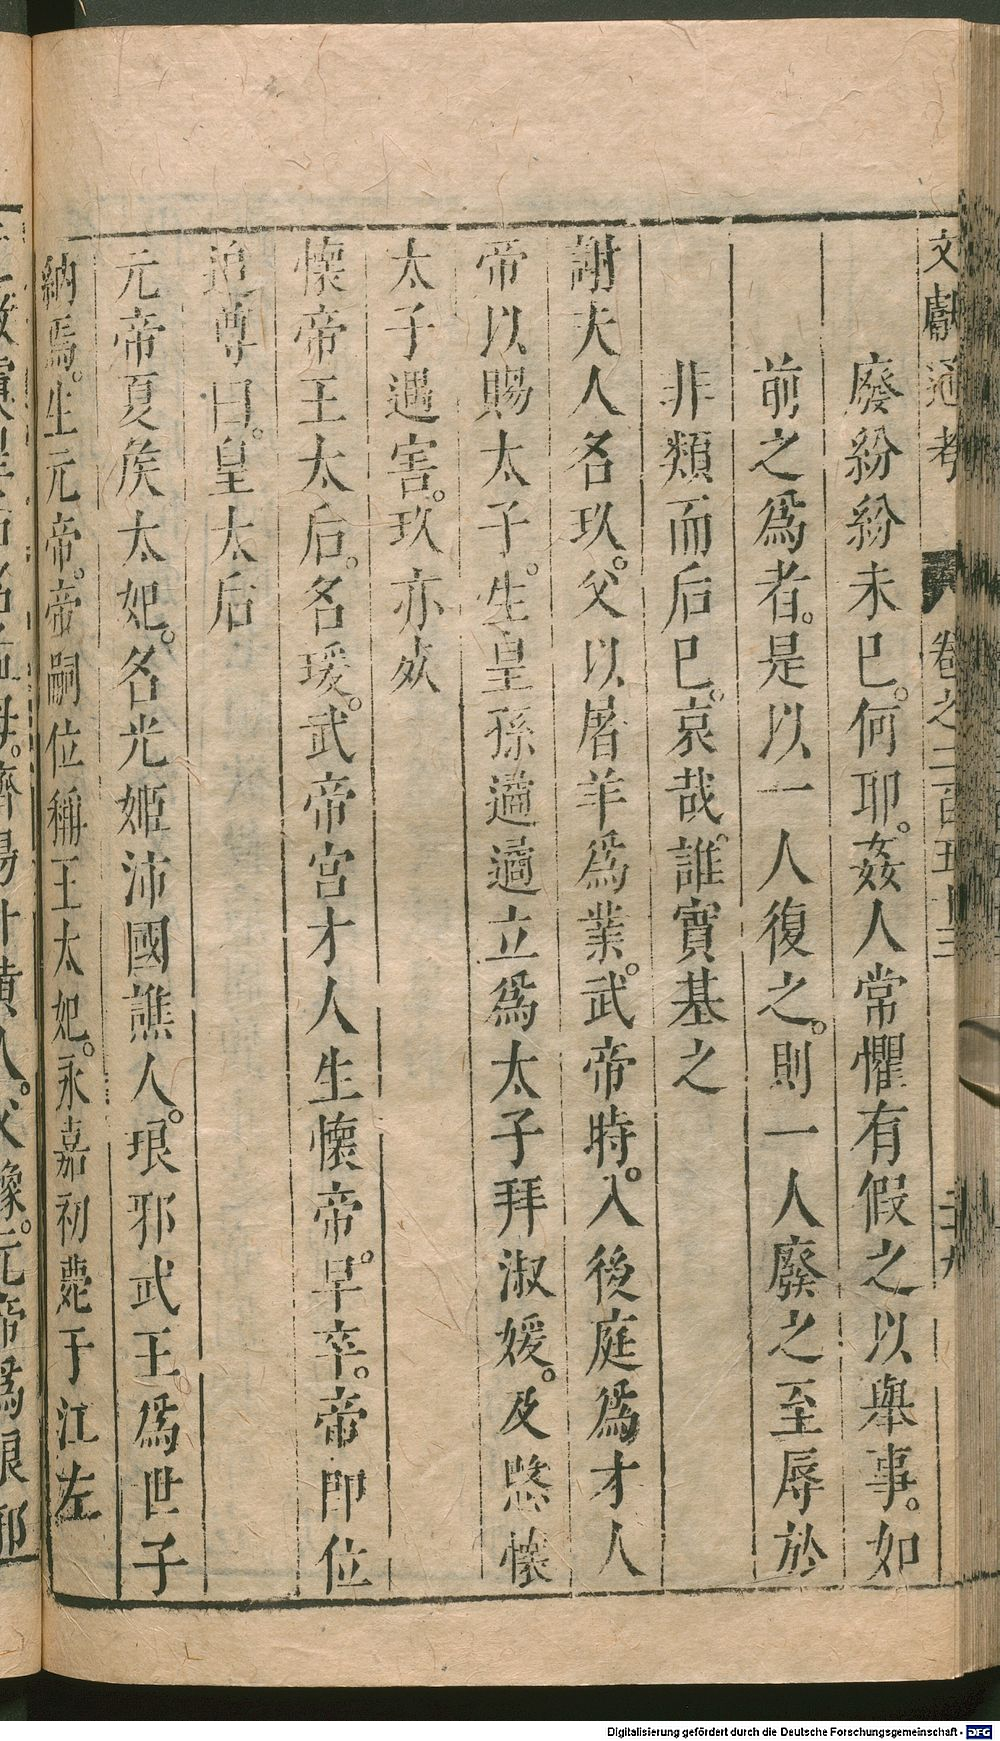 文獻通考 卷之二百五十三 三九
廢紛紛未巳。何耶。姦人常懼有假之以舉事。如
前之爲者。是以一人復之。則一人廢之至辱於
非類而后巳。哀哉。誰實基之
謝夫人名玖。父以屠羊爲業。武帝時。入後庭爲才人
帝以賜太子。生皇孫遹遹立爲太子拜淑媛。及愍懷
太子遇害。玖亦灾
懷帝王太后。名瑗。武帝宮才人生懷帝。早卒。帝即位
追尊曰。皇太后
元帝夏矦太妃。名光姬沛國譙人。琅邪武王爲世子
納焉。生元帝。帝嗣位稱王太妃。永嘉初薨于江左
Digitalisierung gefördert durch die Deutsche Forschungsgemeinschaft - DFG